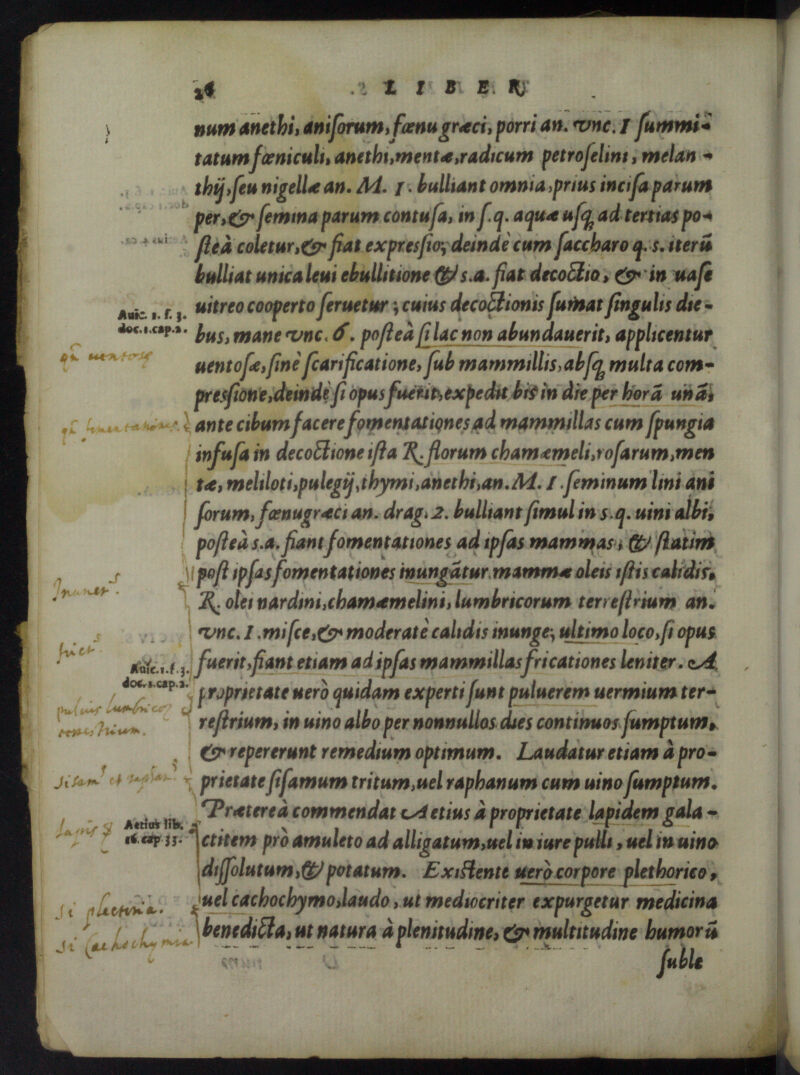 26 LIBER
num anethi, aniſorum, fœnu græci, porri an. vnc. 1 ſummi-
tatum fœniculi, anethi, mentæ, radicum petroſelini, melan-
thij, ſeu nigellæ an. M. 1. bulliant omnia, prius inciſa parum
per, & ſemina parum contuſa, in ſ. q. aquæ uſq; ad tertias po-
ſteà coletur, & fiat expresſio; deindè cum ſaccharo q. s. iterū
bulliat unica leui ebullitione & s. a. fiat decoctio, & in uaſe
uitreo cooperto ſeruetur; cuius decoctionis ſumat ſingulis die-
Auic. 1. f. 3.
doc. 1. cap. 2.
bus, mane vnc. 6. poſteà ſi lac non abundauerit, applicentur
uentoſæ, ſinè ſcarificatione, ſub mammillis, abſq; multa com-
presſione, deindè ſi opus fuerit, expedit bis in die per horā unā,
ante cibum facere fomentationes ad mammillas cum ſpungia
infuſa in decoctione iſta ℞. florum chamæmeli, roſarum, men
tæ, meliloti, pulegij, thymi, anethi, an. M. 1. ſeminum lini ani
ſorum, fœnugræci an. drag. 2. bulliant ſimul in s. q. uini albi,
poſteà s. a. fiant fomentationes ad ipſas mammas, & ſtatim
poſt ipſas fomentationes inungātur mammæ oleis iſtis calidis.
℞. olei nardini, chamæmelini, lumbricorum terreſtrium an.
vnc. 1. miſce, & moderatè calidis inunge; ultimo loco, ſi opus
fuerit, fiant etiam ad ipſas mammillas fricationes leniter. A
Auic. 1. f. 3.
doc. 1. cap. 2.
proprietate uerò quidam experti ſunt puluerem uermium ter-
reſtrium, in uino albo per nonnullos dies continuos ſumptum,
puluis lumbricoꝝ
terrestrium.
& repererunt remedium optimum. Laudatur etiam à pro-
prietate ſiſamum tritum, uel raphanum cum uino ſumptum.
Prætereà commendat Aetius à proprietate lapidem gala-
Aetius lib.
16. cap 33.
lapis
ctitem prò amuleto ad alligatum, uel in iure pulli, uel in uino
diſſolutum, & potatum. Exiſtente uerò corpore plethorico,
uel cachochymo, laudo, ut mediocriter expurgetur medicina
si pletoria.
benedicta, ut natura à plenitudine, & multitudine humorū
si Cachochymia
ſuble